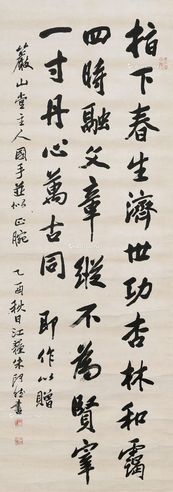 指下春生濟世功杏林和靄
四時融文章縱不為賢宰
一寸丹心萬古同 即作以贈
巖山堂主人國手莊似正腕
乙酉秋日江蘿朱
書